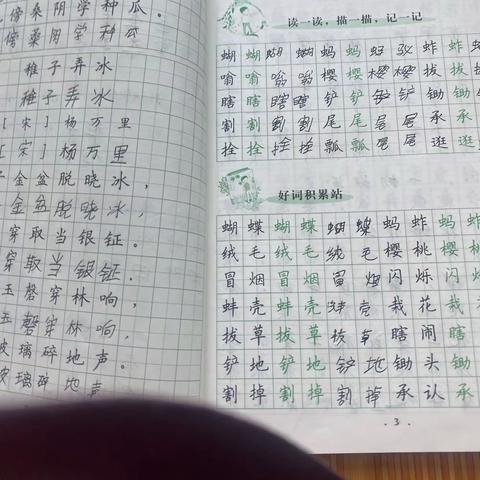 傍桑阴学种瓜。
傍桑阴学种瓜
稚子弄冰
稚子弄冰
[宋]杨万里
[宋]杨万里
子金盆脱晓冰，
金盆脱晓冰，
穿取当银钲。
穿取当银钲.
玉磬穿林响，
玉磬穿林响，
玻璃碎地声。
玻璃碎地声
读一读，描一描，记一记
蝴蝴蝴蝴蚂蚂蚂蚂蚱蚱蚱
嗡嗡嗡嗡樱樱樱樱拔拔拔
瞎瞎瞎瞎铲铲铲铲锄锄锄
割割割割尾尾尾尾承承承
拴拴拴拴瓢瓢尾尾逛逛
好词积累站
蝴蝶蝴蝶蝴蝶蚂蚱蚂蚱
绒毛绒毛绒毛樱桃樱桃
冒烟冒烟冒烟闪烁闪烁
蚌壳蚌壳蚌壳栽花栽
拔草拔草拔草瞎闹瞎
铲地铲地铲地锄头锄
割掉割掉割掉承认承
·3·